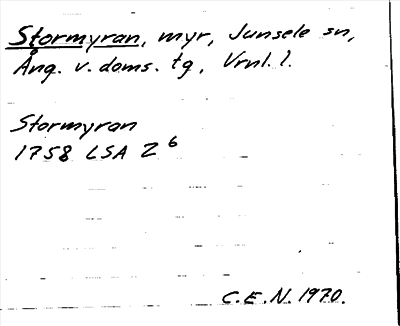 Stormyran, myr, Junsele sn,
Ång. v. doms. tg, Vrnl. l.
Stormyran
1758 LSA Z⁶
C.E.N. 1970.